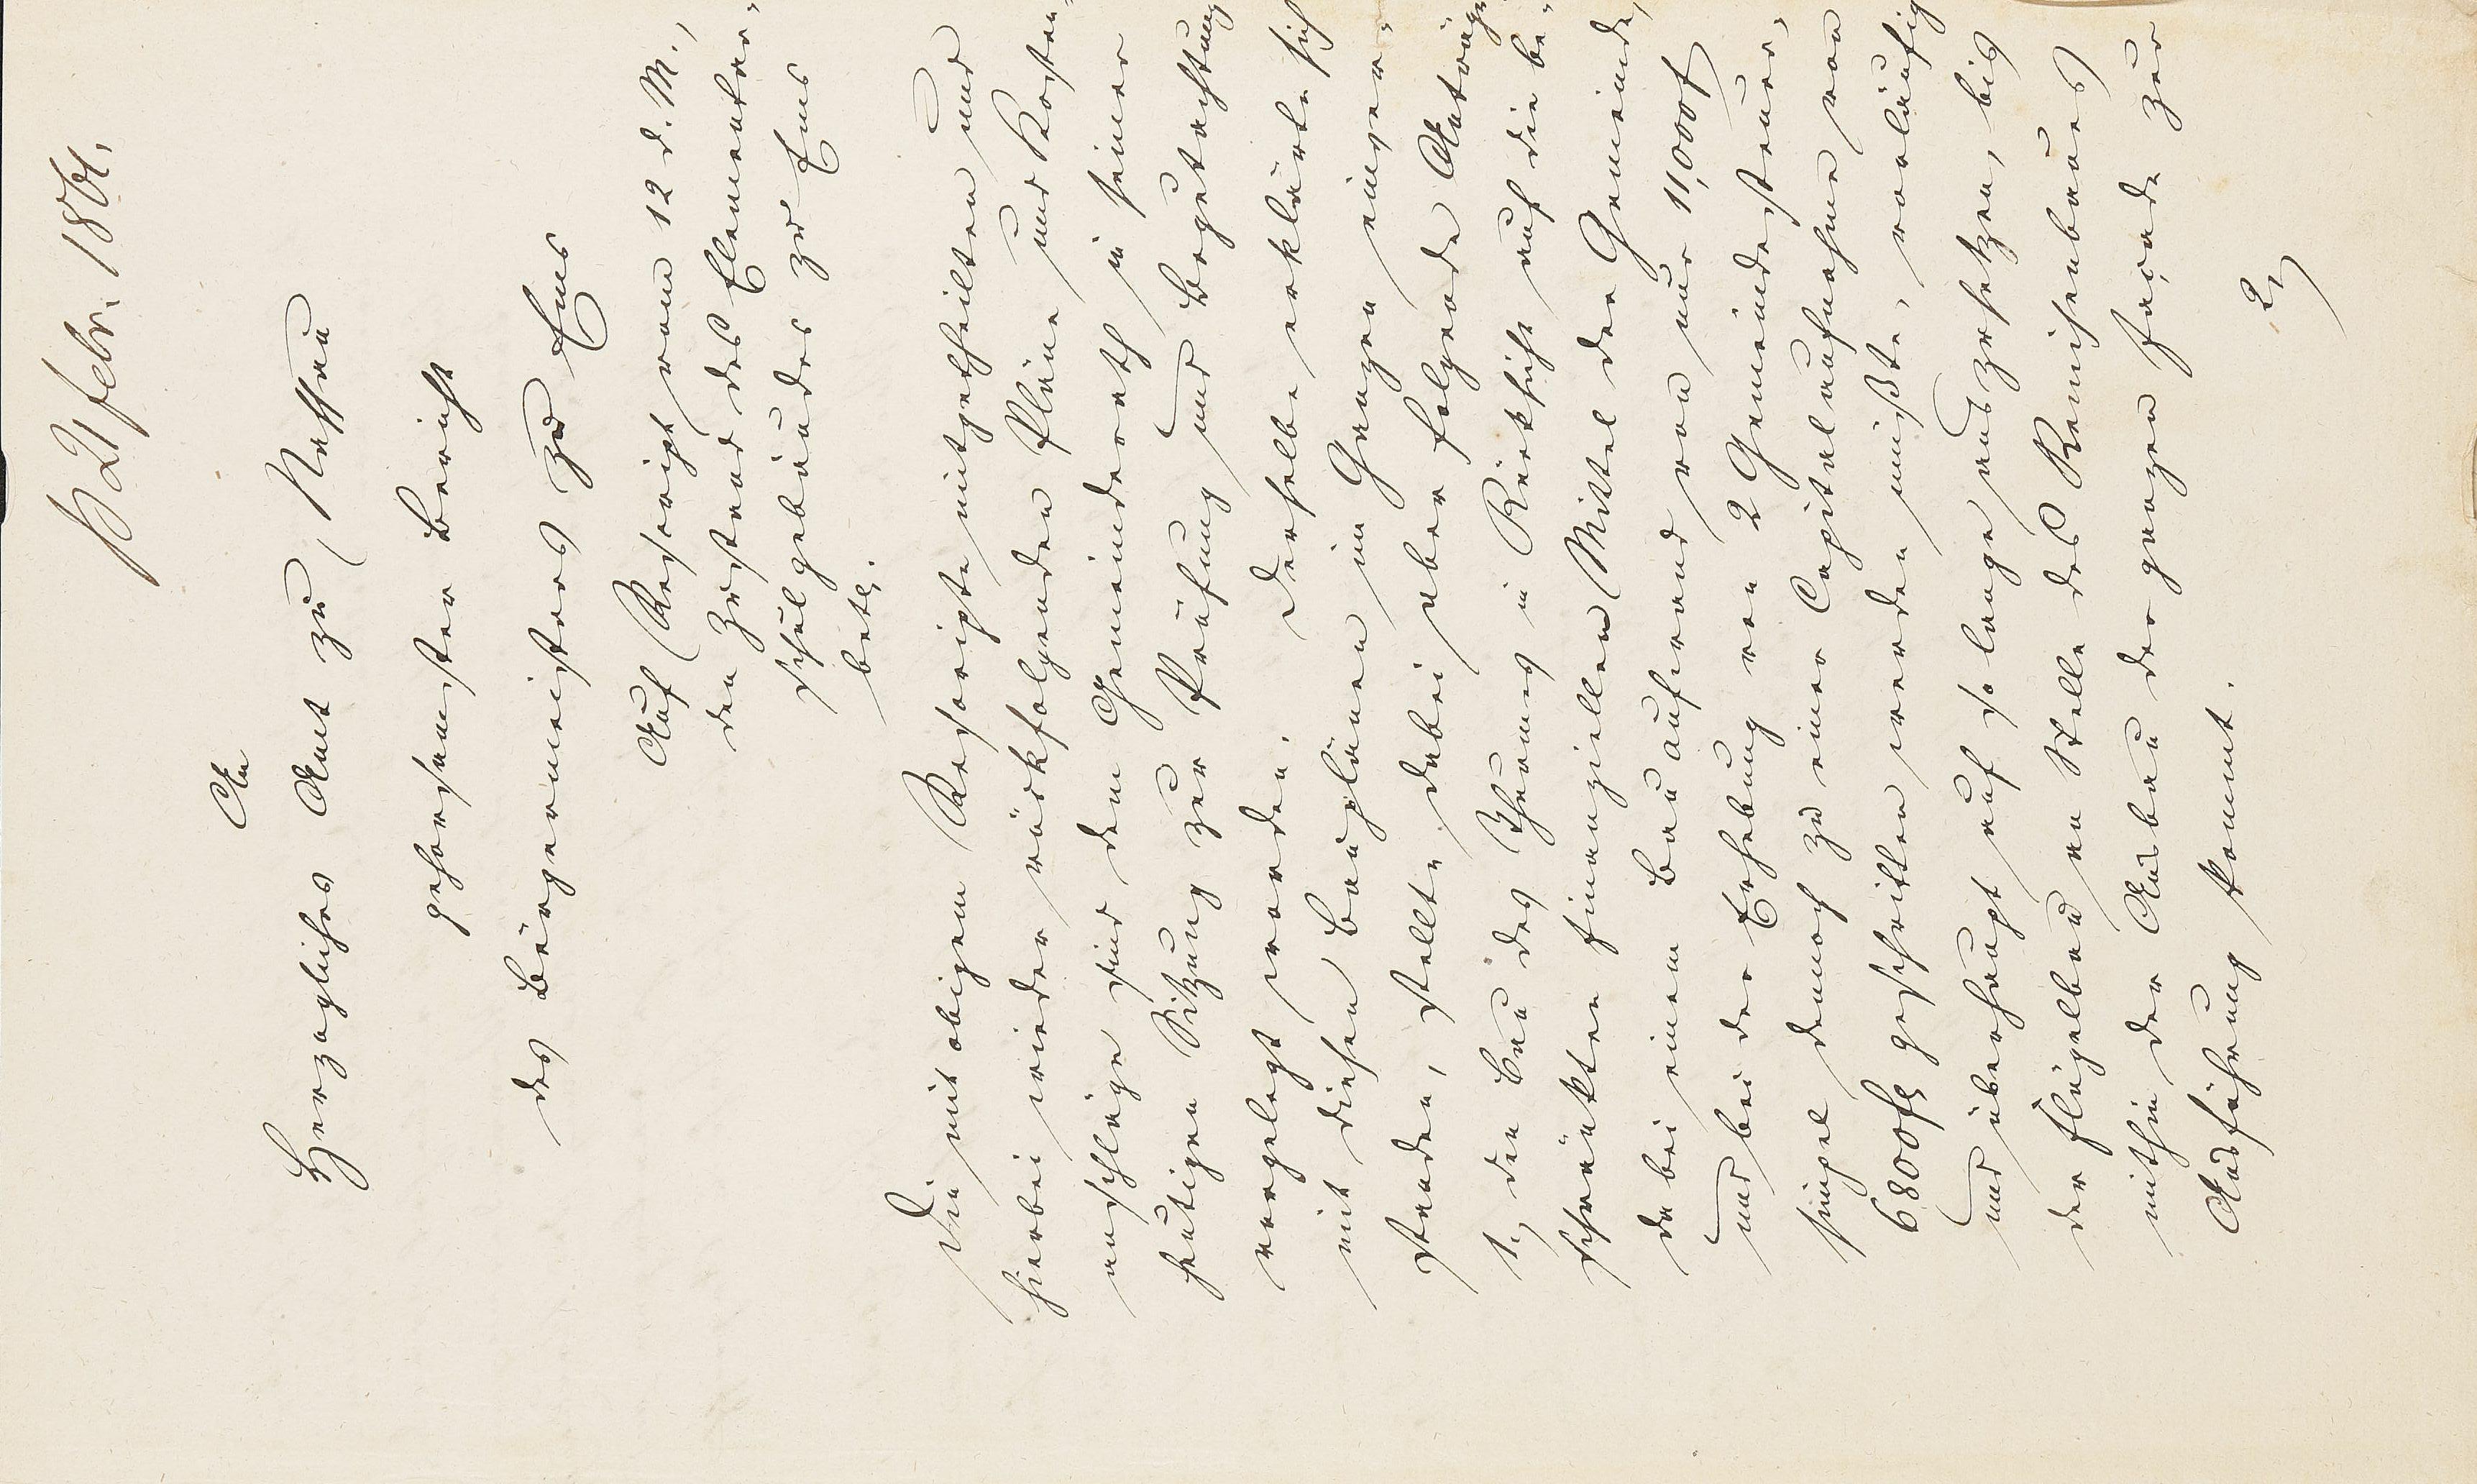 21 febr. 1861.
An
Herzogliches Amt zu Nassau
gehorsamster Bericht
des Bürgermeisters zu Ems
Auf Rescript vom 12 d. M.,
den Zustand des Elementar-
schulgebäudes zu Ems
betr.
Die mit obigem Rescripte mitgetheilten und
hierbei wieder rückfolgenden Pläne und Kosten-
anschläge sind dem Gemeinderath in seiner
heutigen Sitzung zur Prüfung und Begutachtung
vorgelegt worden. Derselbe erklärte sich
mit diesen Bauplänen im Ganzen einver-
standen, stellte dabei aber folgende Anträge
1., den Bau des Thurmes in Rücksicht auf die be-
schränkten finanziellen Mittel der Gemeinde,
da bei einem Bauaufwand von nur 11,000 f
und bei der Erhebung von 2 Gemeindesteuer-
simpel dennoch zu einer Capitalaufnahme von
6800 fl geschritten werden müßte, vorläufig
und überhaupt auf so lange auszusetzen, bis
der Flügelbau an Stelle des Remisenbaues
mithin der Ausbau der ganzen Façade zur
Ausführung kommt.
2.,